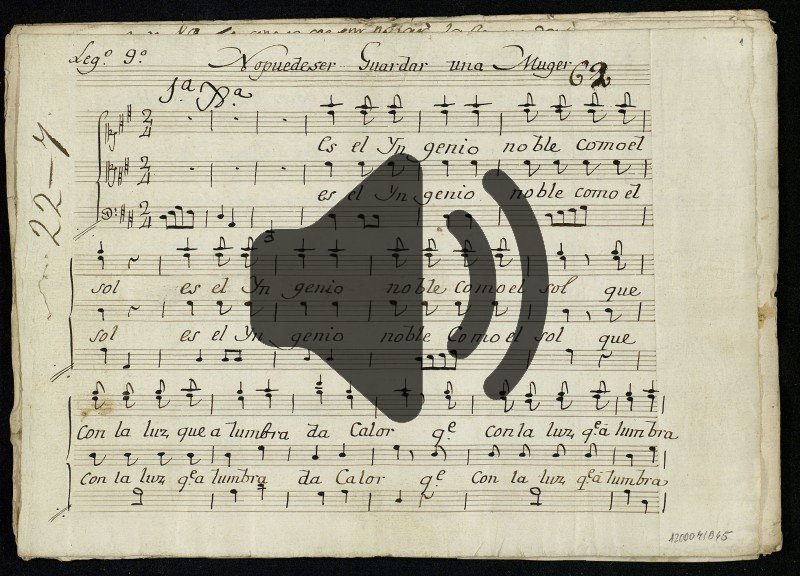 Leg.º 9.º Nopuedeser Guardar una Muger 62
1
1.ª X.ª
22-7
Es el Yn genio noble Comoel
es el Yn genio noble como el
sol es el Yn genio noble Como el sol que
sol es el Yn genio noble Como el sol que
Con la luz, que a lumbra da Calor q.e con la luz, q.e a lumbra
Con la luz, q.e a lumbra da Calor q.e Con la luz, q.e a lumbra
1200041045